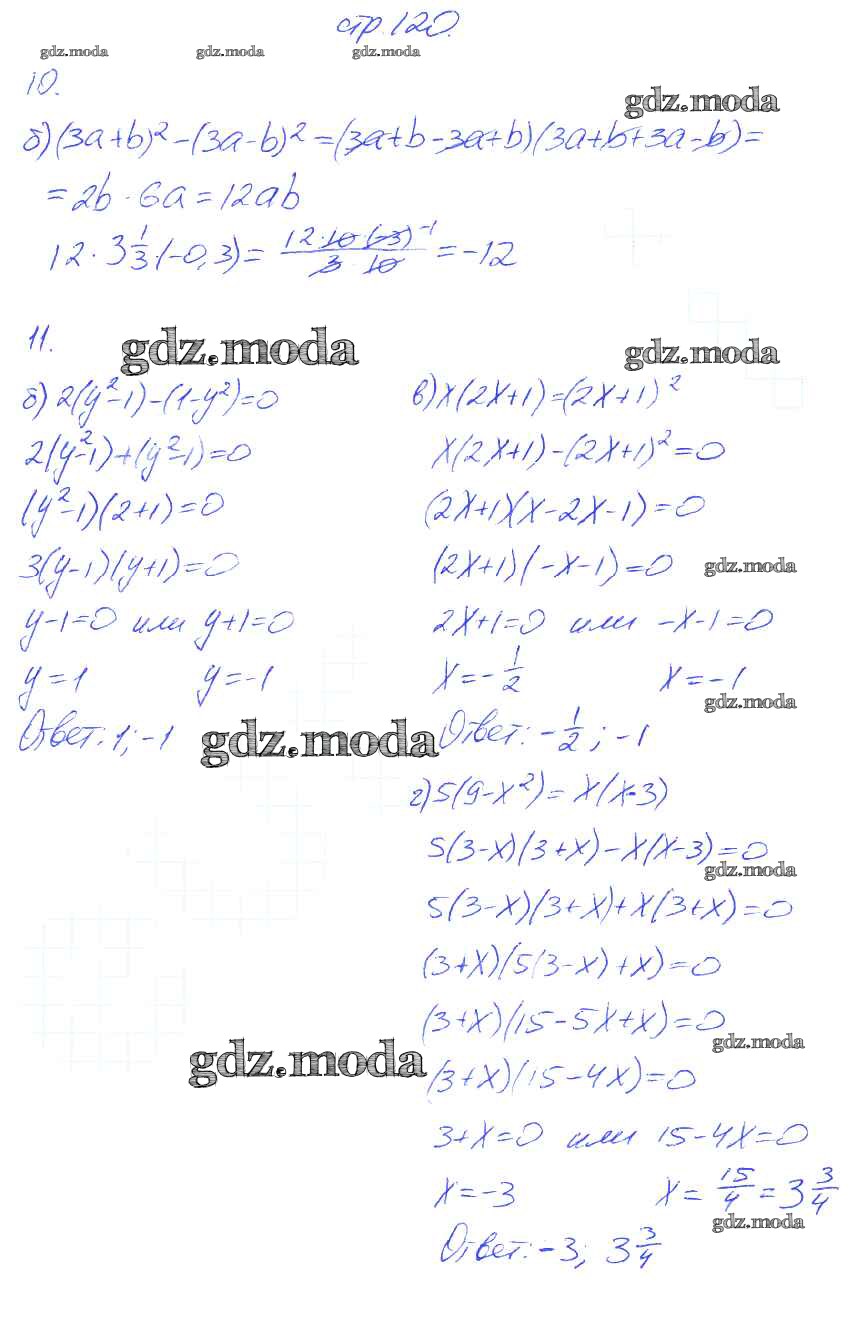 стр. 120.
gdz.moda gdz.moda gdz.moda
10.
gdz.moda
б) (3a+b)² - (3a-b)² = (3a+b-3a+b)(3a+b+3a-b) =
= 2b · 6a = 12ab
12 · 3 1/3 · (-0,3) = 12·10·(-3) -1 / 3·10 = -12
11.
gdz.moda
gdz.moda
б) 2(y²-1)-(1-y²)=0
2(y²-1)+(y²-1)=0
(y²-1)(2+1)=0
3(y-1)(y+1)=0
y-1=0 или y+1=0
y=1 y=-1
Ответ: 1; -1
gdz.moda
в) x(2x+1)=(2x+1)²
x(2x+1)-(2x+1)²=0
(2x+1)(x-2x-1)=0
(2x+1)(-x-1)=0
gdz.moda
2x+1=0 или -x-1=0
x=-1/2 x=-1
gdz.moda
Ответ: -1/2; -1
г) 5(9-x²)=x(x-3)
5(3-x)(3+x)-x(x-3)=0
gdz.moda
5(3-x)(3+x)+x(3+x)=0
(3+x)(5(3-x)+x)=0
(3+x)(15-5x+x)=0
gdz.moda
gdz.moda
(3+x)(15-4x)=0
3+x=0 или 15-4x=0
x=-3 x=15/4=3 3/4
gdz.moda
Ответ: -3; 3 3/4